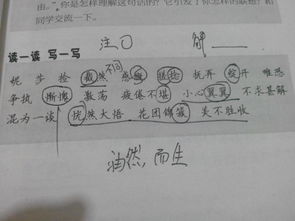 由。”你是怎样理解这句话的？它引发了你怎样的联想？相
同学交流一下。
读一读 写一写
注〇 解
妩 莎 捡 截然不同 感慨 琐捡 抚弄 绽开 唯恐
争执 渐渐 激荡 疲倦不堪 小心翼翼 不求甚解
混为一谈 恍然大悟 花团锦簇 美不胜收
油然而生